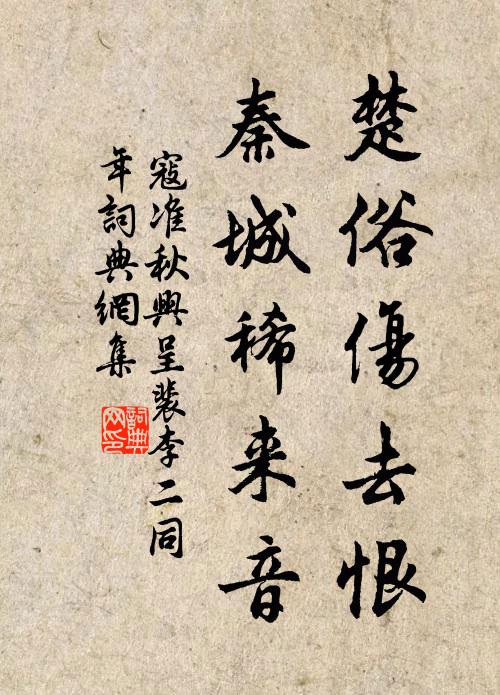 楚俗傷去恨
秦城稀来音
寇准秋興呈裴李二同
年詞典網集
詞典
网印